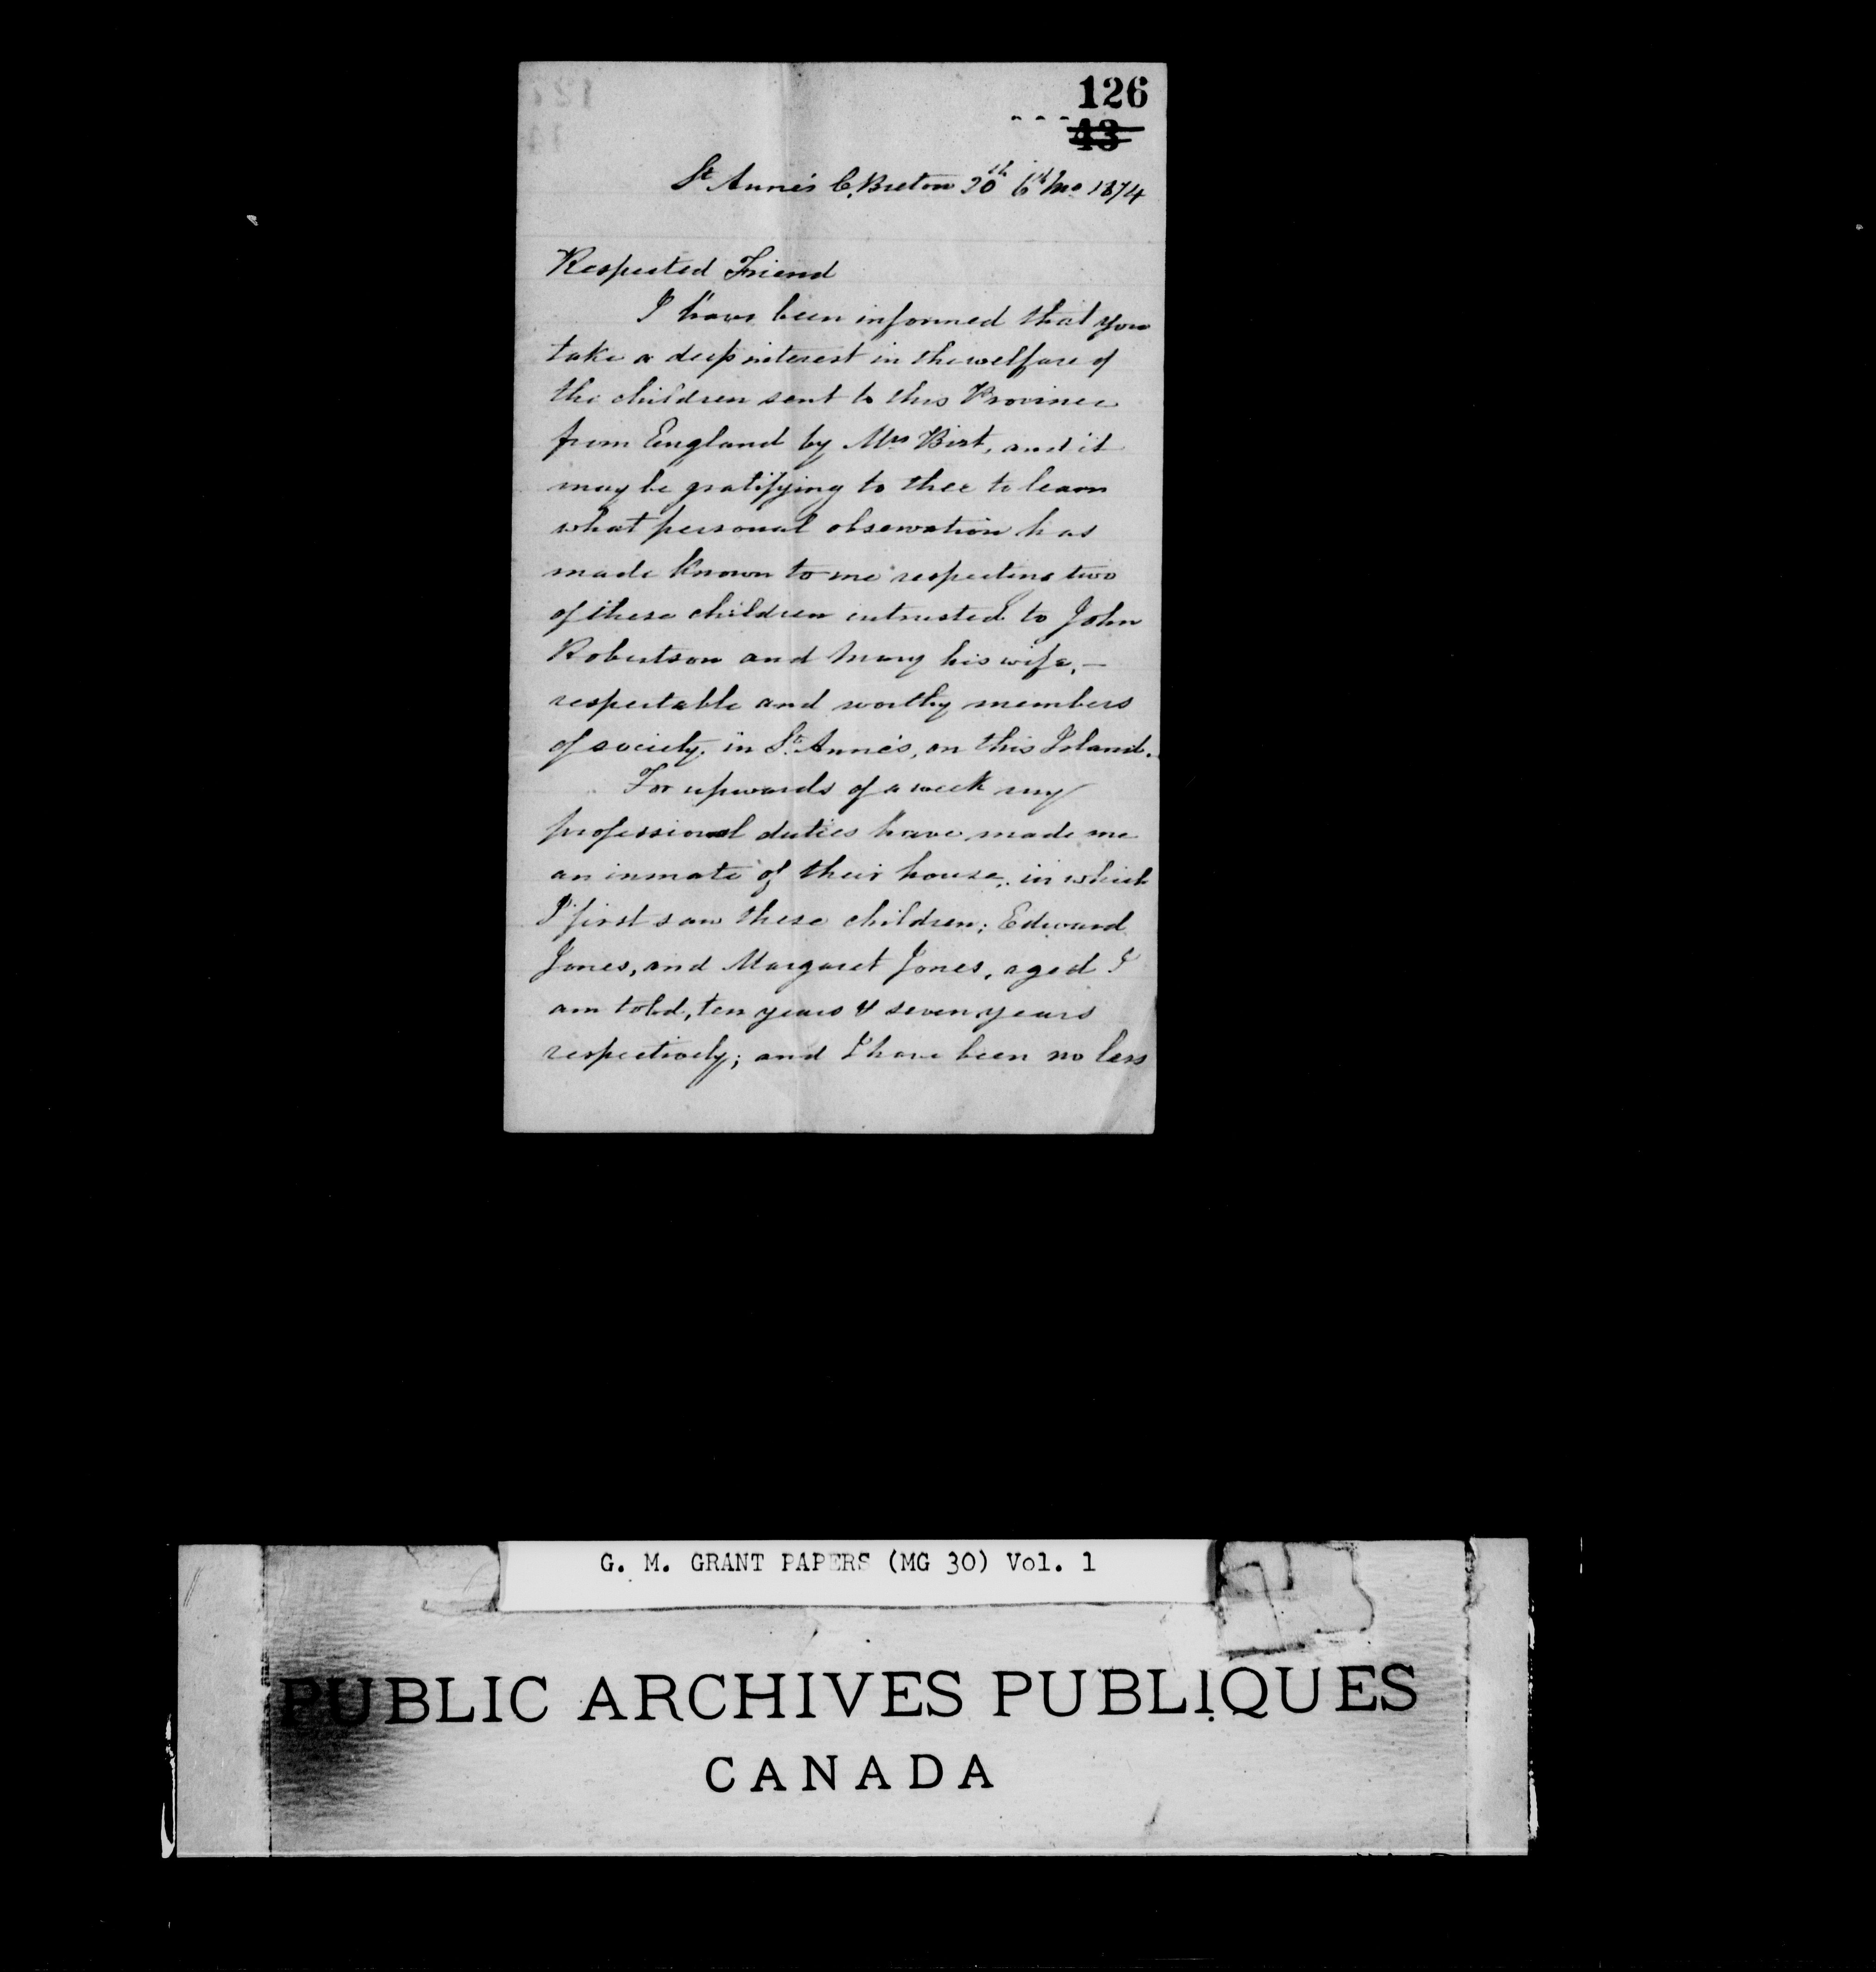 126
43
St Anne's C. Breton 20th 6th Mo 1874
Respected Friend
I have been informed that you
take a deep interest in the welfare of
the children sent to this Province
from England by Mrs Birt, and it
may be gratifying to thee to learn
what personal observation has
made known to me respecting two
of these children intrusted to John
Robertson and Mary his wife, —
respectable and worthy members
of society in St Anne's, on this Island.
For upwards of a week my
professional duties have made me
an inmate of their house, in which
I first saw these children; Edward
Jones, and Margaret Jones, aged I
am told, ten years & seven years
respectively; and I have been no less
G. M. GRANT PAPERS (MG 30) Vol. 1
PUBLIC ARCHIVES PUBLIQUES
CANADA